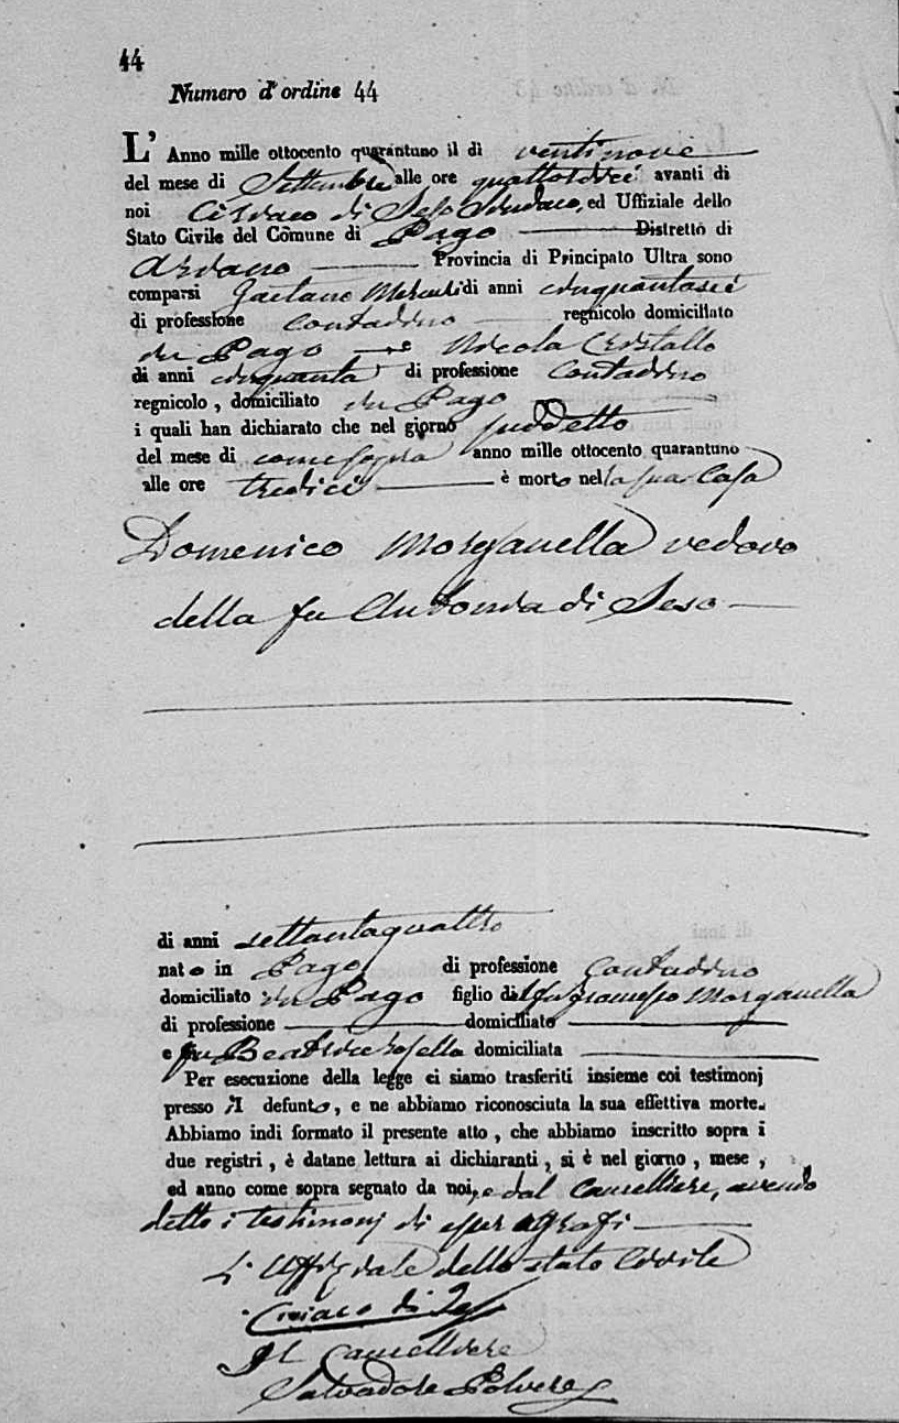 44
Numero d'ordine 44
L' Anno mille ottocento quarantuno il dì ventinove
del mese di Settembre alle ore quattordici avanti di
noi Ciriaco di Seso Sindaco, ed Uffiziale dello
Stato Civile del Comune di Pago Distretto di
Ariano Provincia di Principato Ultra sono
comparsi Gaetano Mercuri di anni cinquantasei
di professione Contadino regnicolo domiciliato
in Pago e Nicola Cristallo
di anni cinquanta di professione Contadino
regnicolo, domiciliato in Pago
i quali han dichiarato che nel giorno suddetto
del mese di come sopra anno mille ottocento quarantuno
alle ore tredici è morto nella sua Casa
Domenico Morganella vedovo
della fu Antonia di Seso
di anni settantaquattro
nato in Pago di professione Contadino
domiciliato in Pago figlio del fu Morganella
di professione domiciliato
e fu Beatrice domiciliata
Per esecuzione della legge ci siamo trasferiti insieme coi testimonj
presso il defunto, e ne abbiamo riconosciuta la sua effettiva morte.
Abbiamo indi formato il presente atto, che abbiamo inscritto sopra i
due registri, è datane lettura ai dichiaranti, si è nel giorno, mese,
ed anno come sopra segnato da noi, e dal Cancelliere, avendo
detto i testimonj di esser agrafi
L'Uffiziale dello stato Civile
Ciriaco di Seso
Il Cancelliere
Salvadore Polvere